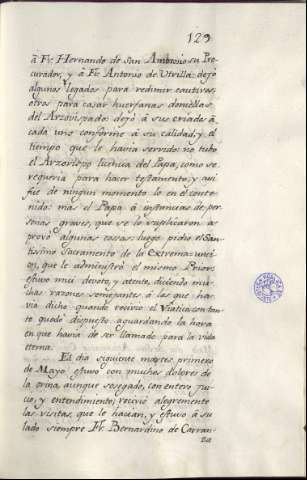 129
â Fr. Hernando de San Ambrosio su Pro-
curador, y â Fr. Antonio de Utrilla: dejó
algunos legados para redimir cautivos,
otros para casar huerfanas doncellas
del Arzovispado: dejó â sus criados â
cada uno conforme â su calidad, y el
tiempo que le havia servido: no tubo
el Arzovispo licencia del Papa, como se
requeria para hacer testamento, y asi
fue de ningun momento lo en él conte-
nido: mas el Papa â instancias de per-
sonas graves, que se lo suplicaron a-
provó algunas cosas: luego pidio el San-
tissimo Sacramento de la Extrema-unci-
on, que le administró el mismo Prior:
estuvo mui devoto, y atento, diciendo mu-
chas razones semejantes â las que ha-
via dicho quando recivio el Viatico: con tan-
to quedó dispuesto aguardando la hora
en que havia de ser llamado para la vida
eterna.
El dia siguiente martes primero
de Mayo estuvo con muchos dolores de
la orina, aunque sosegado, con entero jui-
cio, y entendimiento; recivió alegremente
las visitas, que le hacian, y estuvo â su
lado siempre Fr. Bernardino de Carran-
za